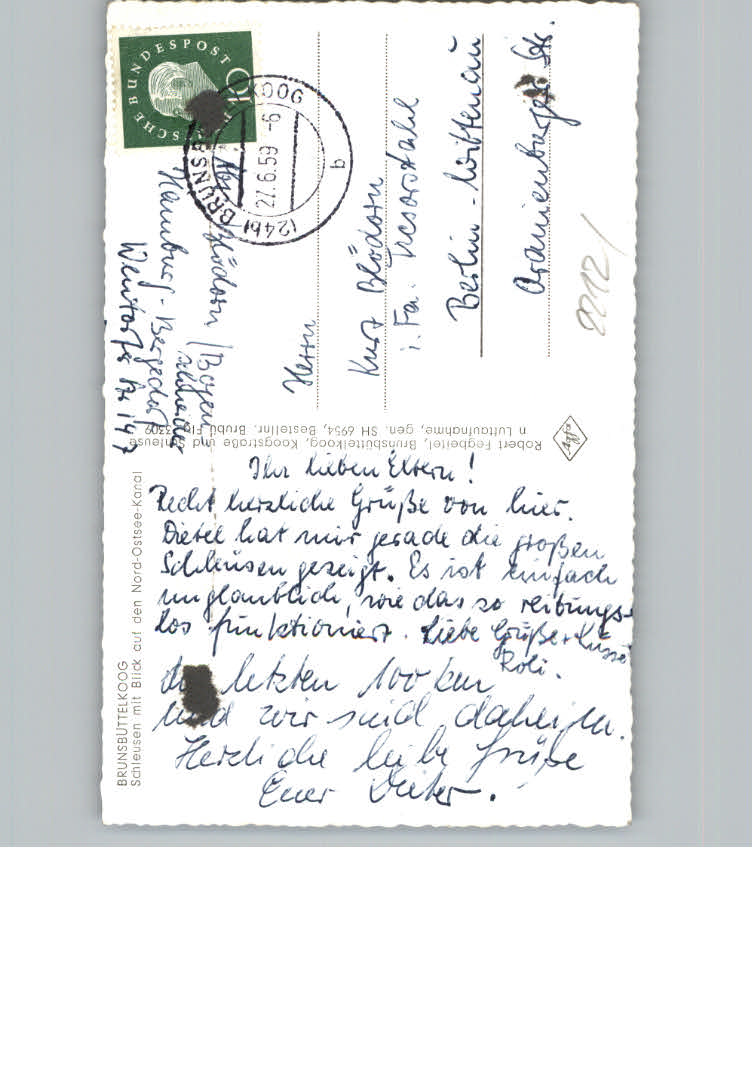 DEUTSCHE BUNDESPOST
(24b) BRUNSBÜTTELKOOG
27.6.59 -6
b
Blödorn / Boyens
Hamburg-Bergedorf
Wentorfer Str. 147
Herrn
Kurt Blödorn
i. Fa. Tresorstahl
Berlin-Wittenau
Oranienburger Str.
2212/
Robert Fegbeitel, Brunsbüttelkoog, Koogstraße und Schleuse
n Luftaufnahme, gen. SH 6954, Bestellnr. Brubü Flug
Agfa
BRUNSBÜTTELKOOG
Schleusen mit Blick auf den Nord-Ostsee-Kanal
Ihr lieben Eltern!
Recht herzliche Grüße von hier.
Dieter hat mir gerade die großen
Schleusen gezeigt. Es ist einfach
unglaublich, wie das so reibungs-
los funktioniert. Liebe Grüße + Küsse
Roli.
letzten 100 km
und wir sind daheim.
Herzliche liebe Grüße
Euer Dieter.